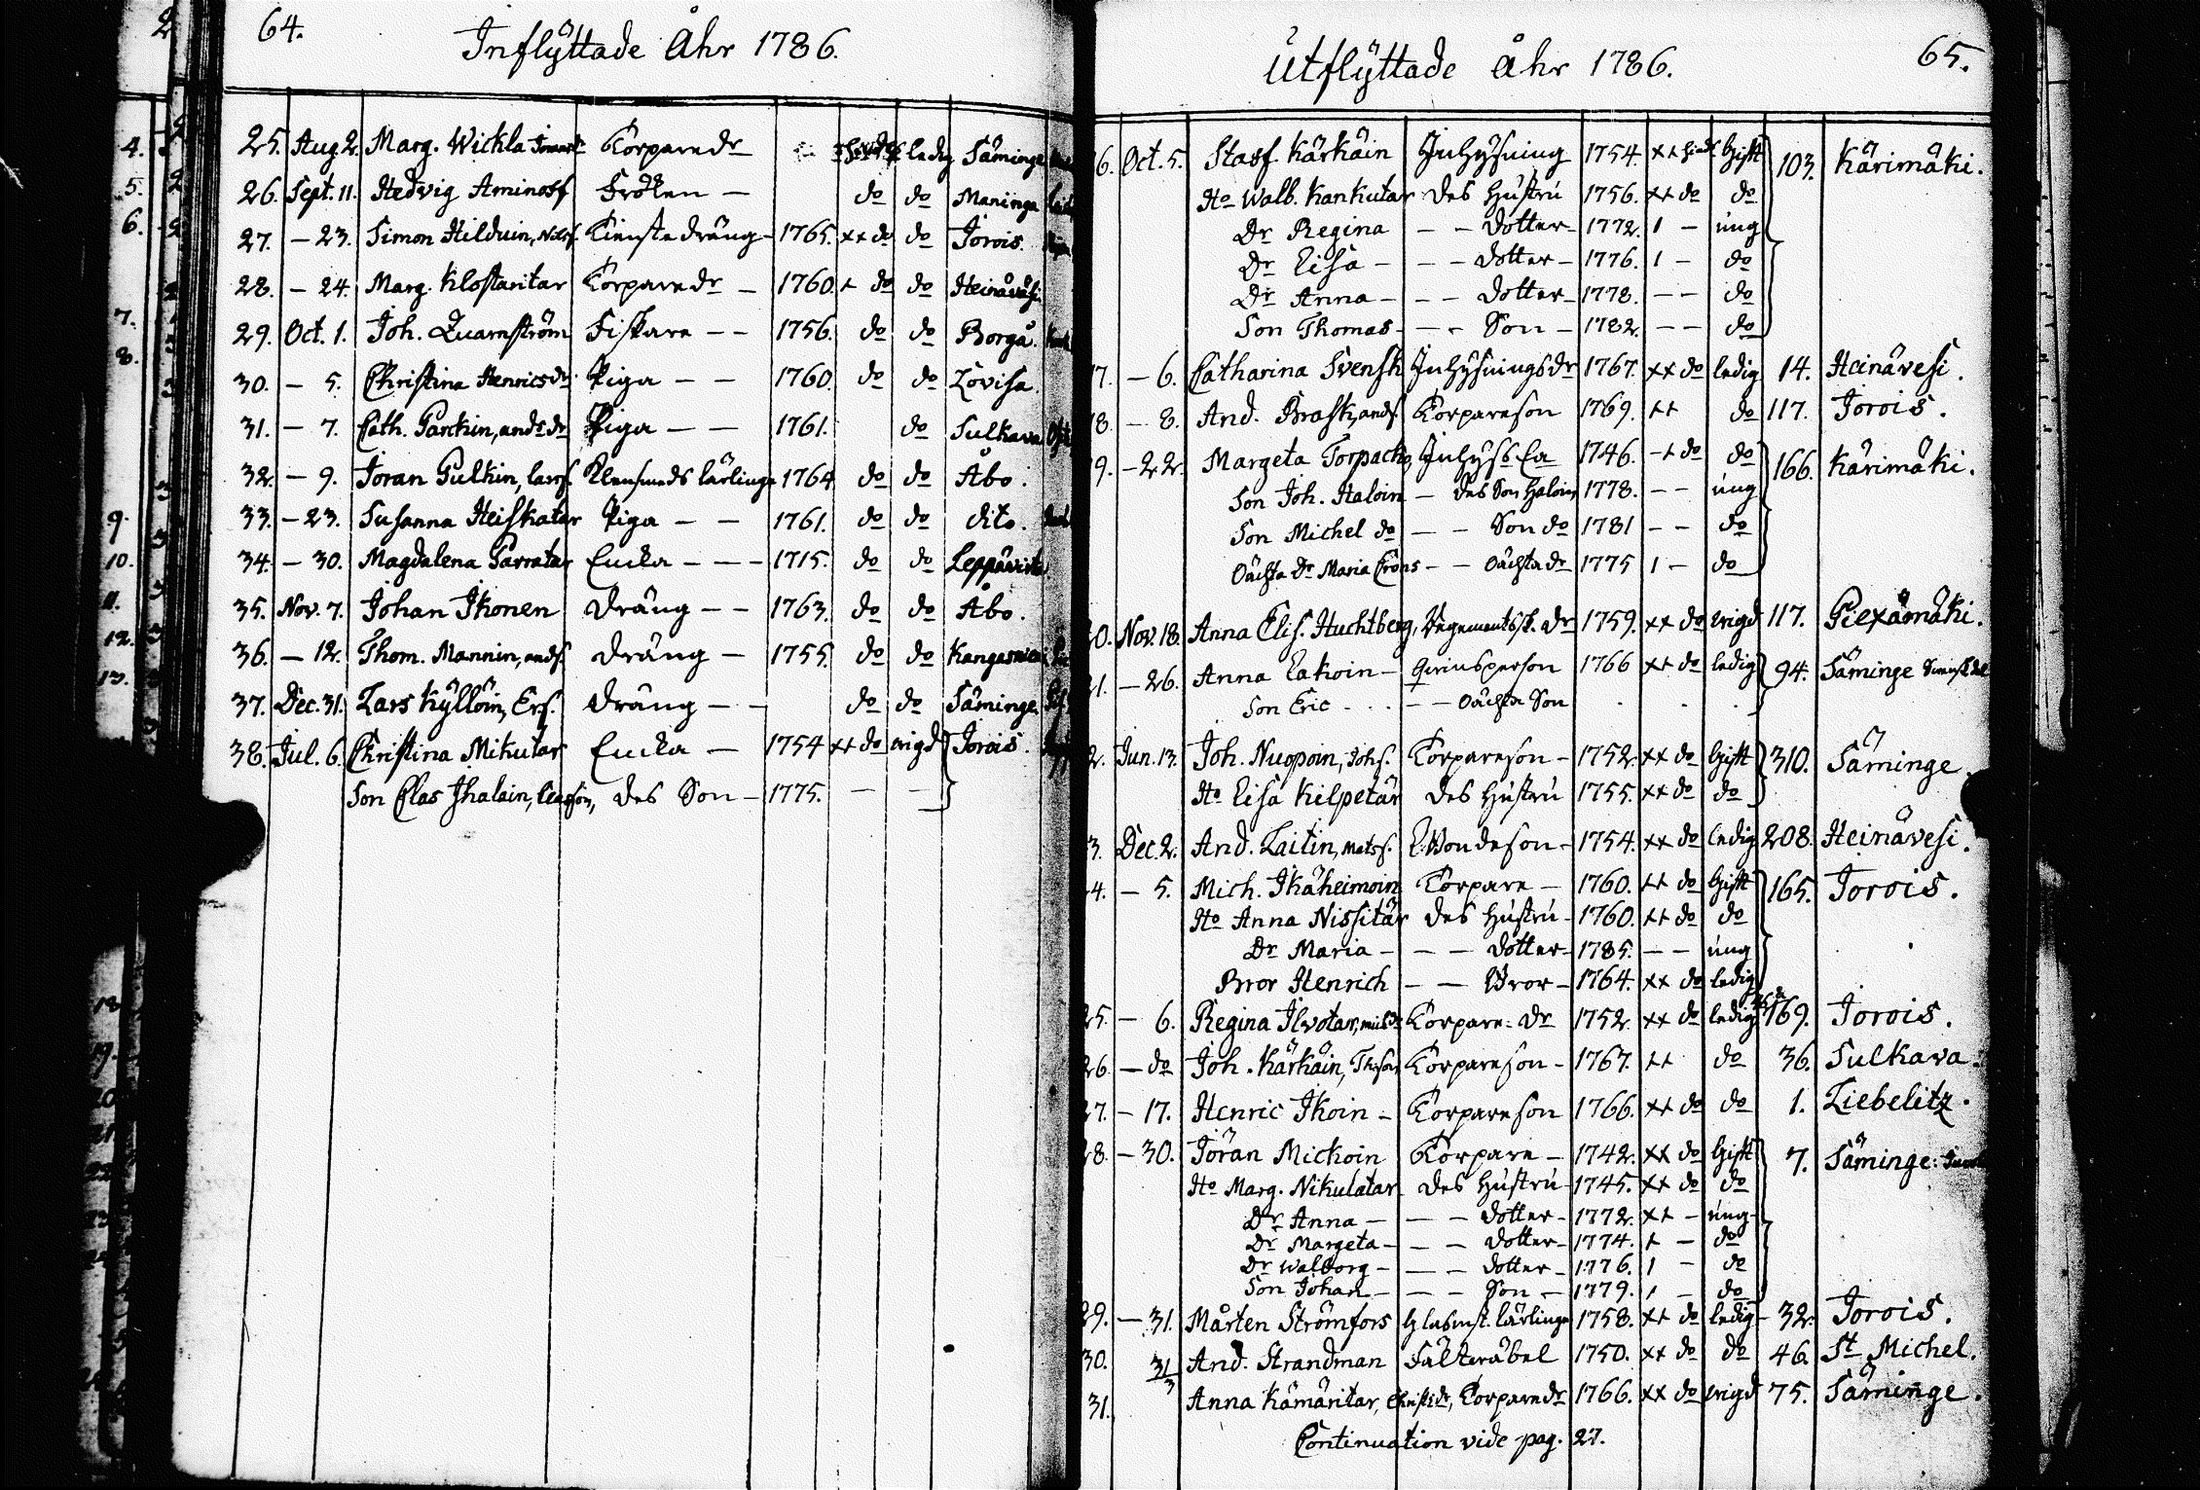 64.
Inflÿttade Åhr 1786.
25. Aug 2. Marg. Wickla Torpare dr ledig Säminge
26. Sept. 11. Hedvig Aminoff Fröken — do do Maninga
27. — 23. Simon Hilduin, Tienste dräng — 1765. ×× do do Jorois.
28. — 24. Marg. Klostaritar Torpare dr — 1760. + do do Heinäväsi.
29. Oct. 1. Joh. Quarnström Fiskare — — 1756. do do Borgå.
30. — 5. Christina Henricsdr. Piga — — 1760. do do Lovisa.
31. — 7. Cath. Parckin, andsdr Piga — — 1761. do Sulkava
32. — 9. Jöran Pulkin, larsf. lärlinge 1764 do do Åbo.
33. — 23. Susanna Heiskatar Piga — — 1761. do do dito.
34. — 30. Magdalena Parratar Encka — — — 1715. do do Leppävirta
35. Nov. 7. Johan Ikonen dräng — — 1763. do do Åbo.
36. — 12. Thom. Mannin, andf. dräng — 1755. do do Kangasniemi
37. Dec. 31. Lars Kÿllöin, Ersf. dräng — — do do Säminge
38. Jul. 6. Christina Mikutar Encka — 1754 ×× do wigd Jorois.
Son Clas Ihalain, des Son — 1775. — —
Utflÿttade åhr 1786. 65.
16. Oct. 5. Staf Kärkäin Inhÿsning 1754. ×× Gift 103. Kärimäki.
Ho Walb. Kankutar des Hustru 1756. ×× do do
Dr Regina — — dotter — 1772. 1 — ung
Dr Lisa — — — dotter — 1776. 1 — do
Dr Anna — — — dotter — 1778. — — do
Son Thomas — — — Son — 1782. — — do
17. — 6. Catharina Svensk Inhÿsningsdr 1767. ×× do ledig 14. Heinävesi.
18. — 8. And. Brask, ands. Torpareson 1769. ×× do 117. Jorois.
19. — 22. Margeta Torpack, 1746. — × do do 166. Kärimäki.
Son Joh. Haloin — des Son Haloin 1778. — — ung
Son Michel do — — Son do 1781 — — do
Oächta Dr Maria — — Oächta dr 1775 1 — do
20. Nov. 18. Anna Elis. Huchtberg, dr 1759. ×× do wigd 117. Piexämäki.
21. — 26. Anna Lakoin — qvinsperson 1766 ×× do ledig 94. Säminge
Son Eric — — Oächta Son
22. Jun. 13. Joh. Nuopoin, Johs. Torpareson — 1752. ×× do Gift 310. Säminge.
Ho Lisa Kilpetär des Hustru 1755. ×× do do
23. Dec. 2. And. Laitin, Matsf. Bondeson — 1754. ×× do ledig 208. Heinävesi.
24. — 5. Mich. Ikäheimoin Torpare — 1760. ×× do Gift 165. Jorois.
Ho Anna Nissitär des Hustru — 1760. ×× do do
Dr Maria — — — dotter — 1785. — — ung
Bror Henrich — — Bror — 1764. ×× do ledig
25. — 6. Regina Ilvotar, Torpare: dr 1752. ×× do ledig 169. Jorois.
26. — do Joh. Kärkäin, Torpareson — 1767. ×× do 36. Sulkava.
27. — 17. Henric Ikoin — Torpareson 1766. ×× do do 1. Liebelitz.
28. — 30. Jöran Mickoin Torpare — 1742. ×× do Gift 7. Säminge:
Ho Marg. Nikulatar des Hustru — 1745. ×× do do
Dr Anna — — — dotter — 1772. ×× — ung
Dr Margeta — — — dotter — 1774. × — do
Dr Walborg — — — dotter — 1776. 1 — do
Son Johan — — — Son — 1779. 1 — do
29. — 31. Mårten Strömfors lärlinge 1758. ×× do ledig — 32. Jorois.
30. 31/3 And. Strandman Fältwäbel 1750. ×× do do 46. St. Michel.
31. Anna Kämäritar, Torpare dr 1766. ×× do wigd 75. Säminge.
Continuation vide pag. 27.